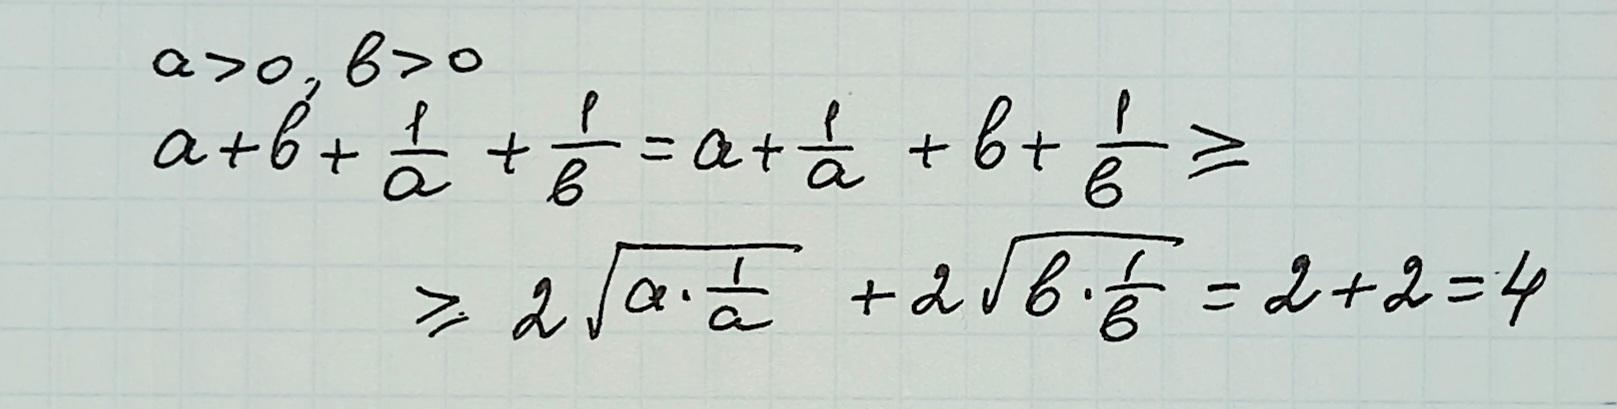 a>0, b>0
a+b+\frac{1}{a}+\frac{1}{b}=a+\frac{1}{a}+b+\frac{1}{b}≥
≥2\sqrt{a·\frac{1}{a}}+2\sqrt{b·\frac{1}{b}}=2+2=4